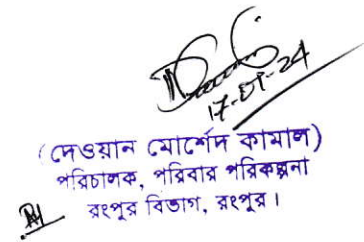 17-01-24
(দেওয়ান মোর্শেদ কামাল)
পরিচালক, পরিবার পরিকল্পনা
রংপুর বিভাগ, রংপুর।